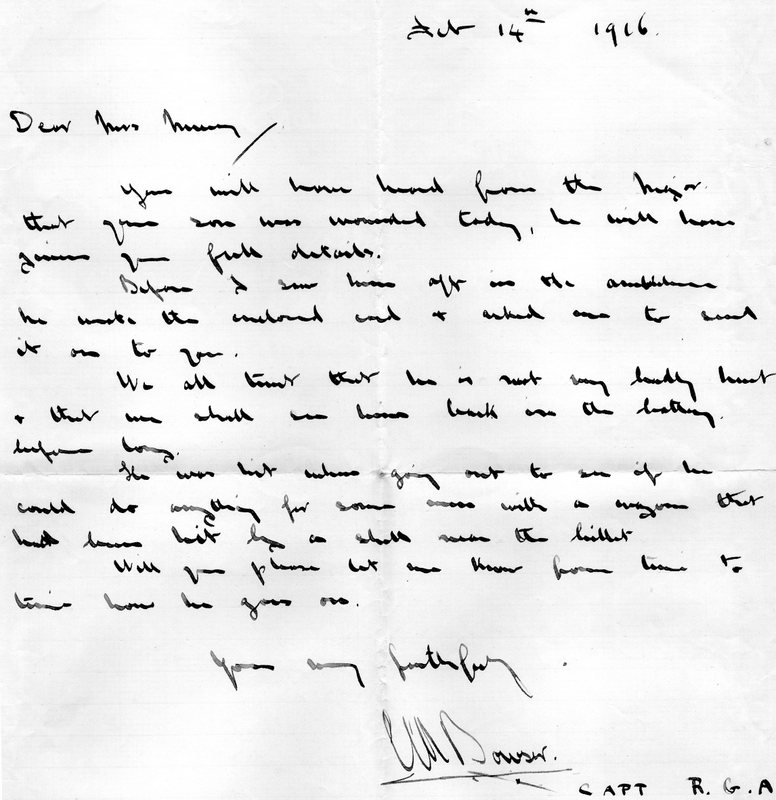 Feb 14th 1916.
Dear Mrs
You will have heard from the Major
that your son was wounded today, he will have
given you full details.
Before I saw him off in the ambulance
he wrote the enclosed card & asked me to send
it on to you.
We all trust that he is not very badly hurt
& that we shall see him back in the battery
before long.
He was hit when going out to see if he
could do anything for some men with a wagon that
had been hit by a shell near the billet
Will you please let me know from time to
time how he goes on.
Yours very faithfully
Bowser.
CAPT R.G.A